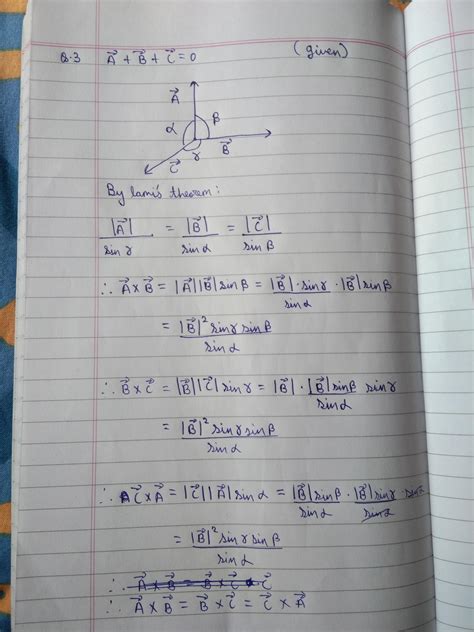 Q.3 A⃗ + B⃗ + C⃗ = 0 (given)
A⃗
α β
B⃗
C⃗ γ
By lami's theorem:
|A⃗|/sin γ = |B⃗|/sin α = |C⃗|/sin β
∴ A⃗ × B⃗ = |A⃗||B⃗| sin β = |B⃗|·sin γ/sin α · |B⃗| sin β
= |B⃗|² sin γ sin β/sin α
∴ B⃗ × C⃗ = |B⃗||C⃗| sin γ = |B⃗| · |B⃗| sin β/sin α sin γ
= |B⃗|² sin γ sin β/sin α
∴ C⃗ × A⃗ = |C⃗||A⃗| sin α = |B⃗| sin β/sin α · |B⃗| sin γ/sin α · sin α
= |B⃗|² sin γ sin β/sin α
∴ A⃗ × B⃗ = B⃗ × C⃗ C⃗
∴ A⃗ × B⃗ = B⃗ × C⃗ = C⃗ × A⃗